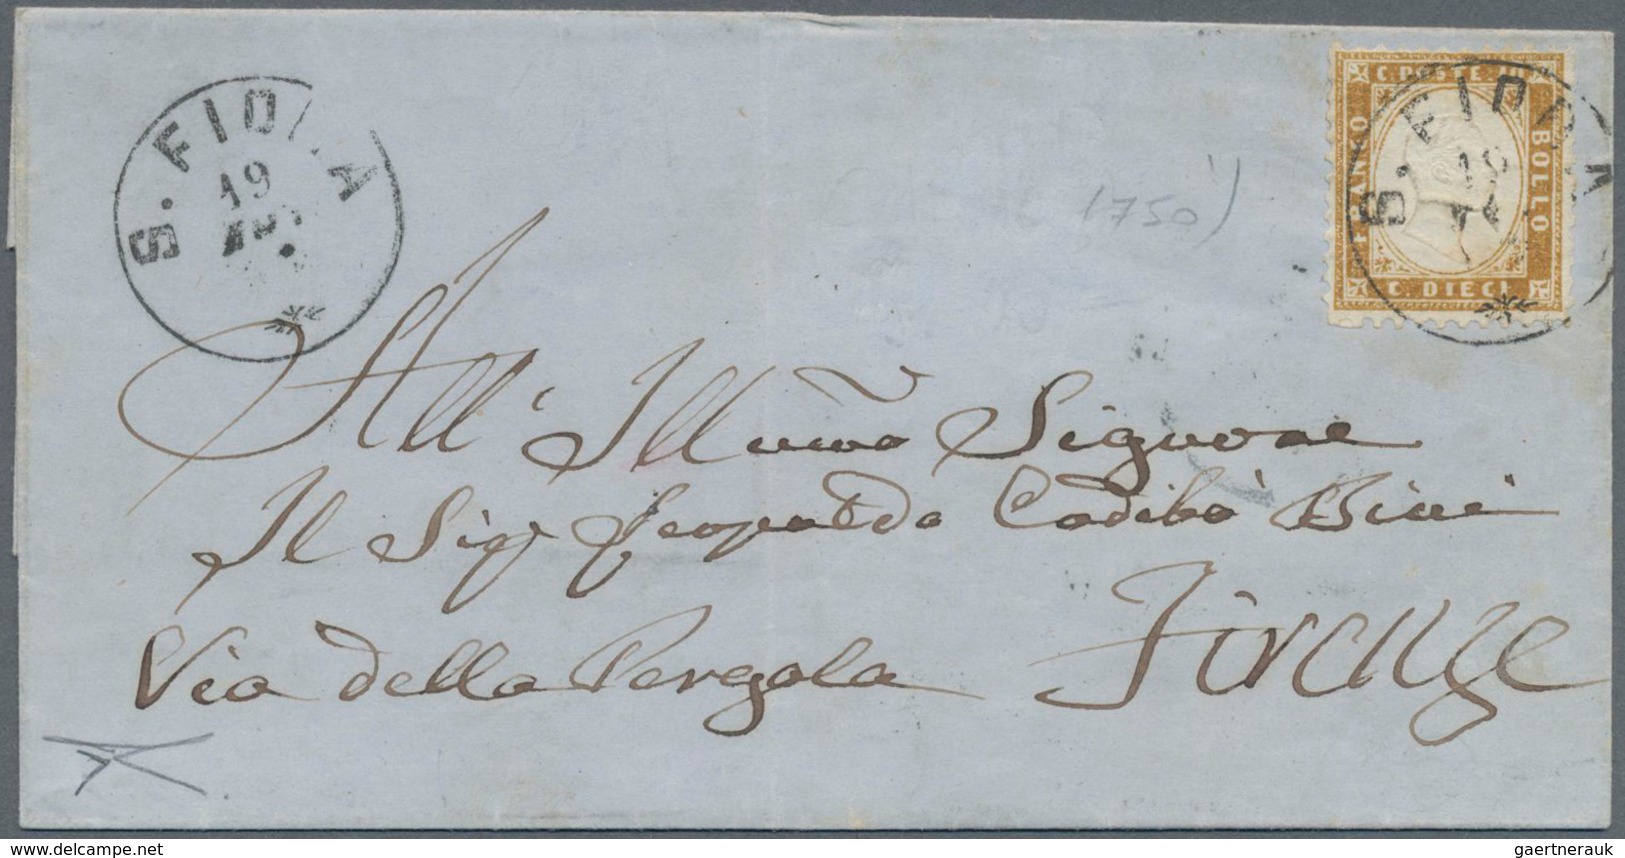 S. FIORA
19
C. POSTE 10
FRANCO
BOLLO
C. DIECI
S. FIORA
1750)
All' Illmo Signore
Il Sig Leopoldo Cadibò Bini
Via della Pergola Firenze
delcampe.net
gaertnerauk